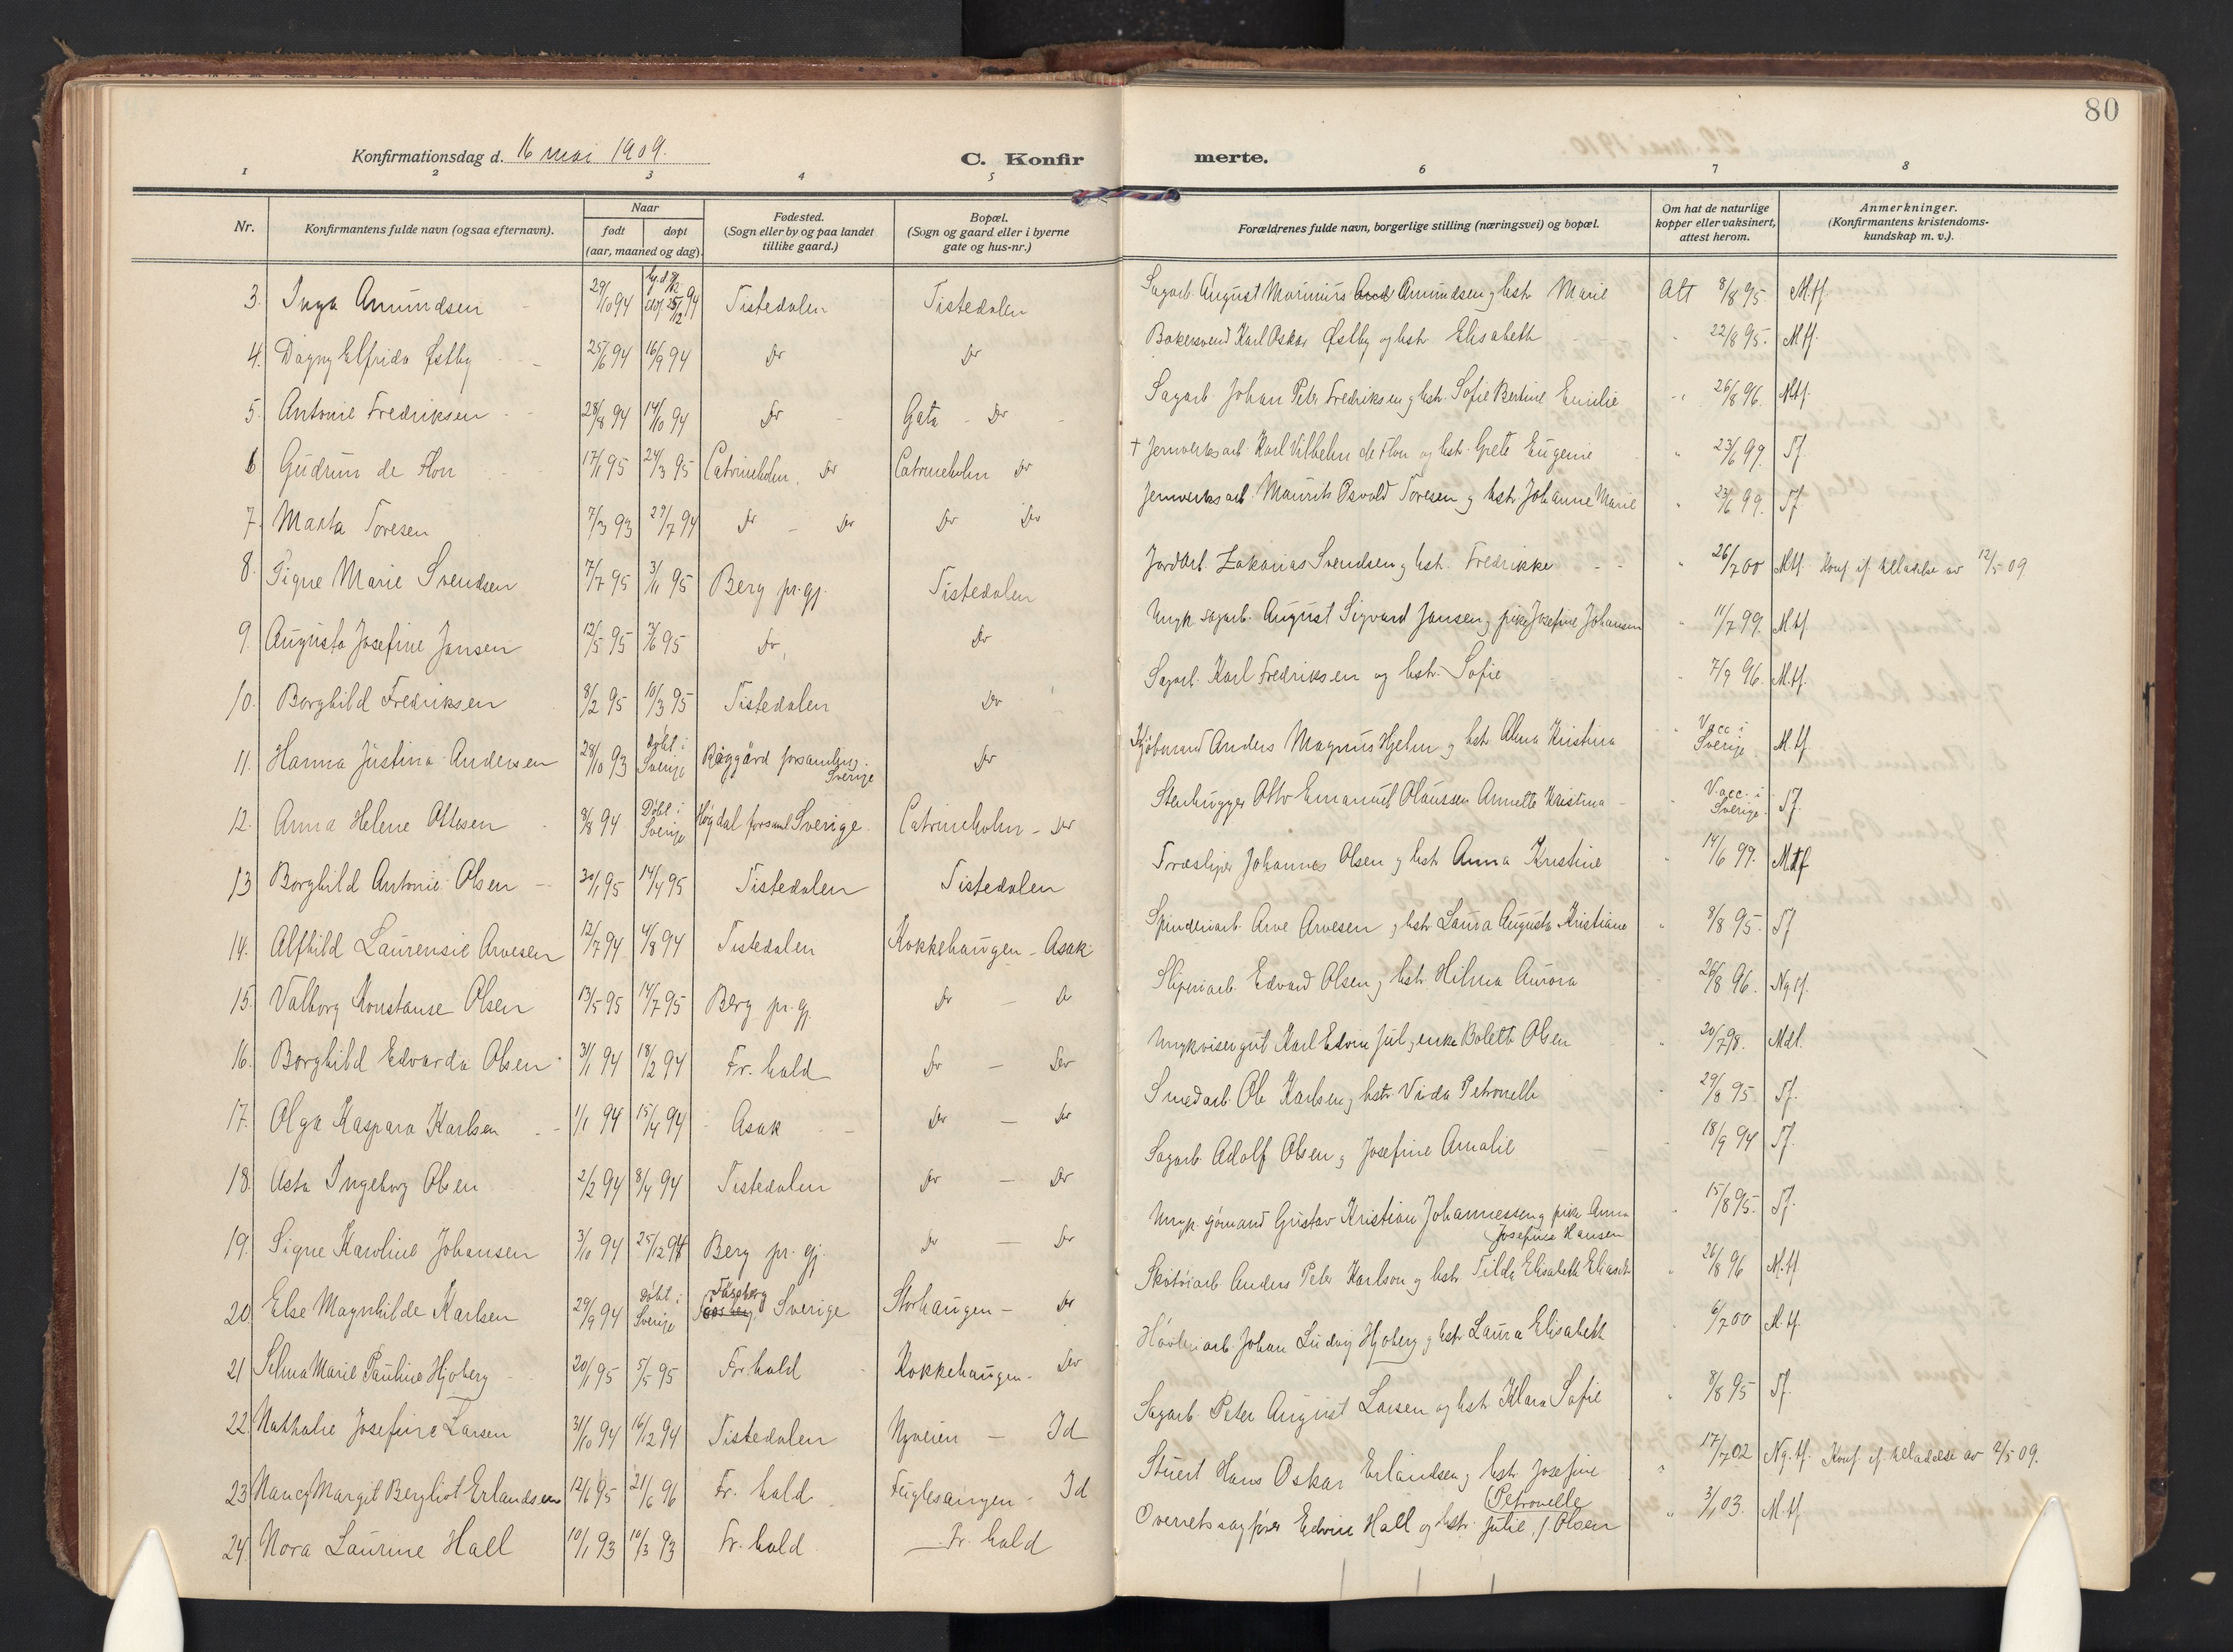 80
Konfirmationsdag d. 16 mai 1909. C. Konfirmerte.
1 2 3 4 5 6 7 8
Nr. Konfirmantens fulde navn (ogsaa efternavn). Naar født døpt (aar, maaned og dag). Fødested. (Sogn eller by og paa landet tillike gaard.) Bopæl. (Sogn og gaard eller i byerne gate og hus-nr.) Forældrenes fulde navn, borgerlige stilling (næringsvei) og bopæl. Om hat de naturlige kopper eller vaksinert, attest herom. Anmerkninger. (Konfirmantens kristendoms-kundskap m. v.).
3. Inga Amundsen 29/10 94 25/12 94 Tistedalen Tistedalen Sagarb. August Marinius Amundsen og hstr Marie Att 8/8 95 M.tf.
4. Dagny Elfrida Østby 25/6 94 16/9 94 Do Do Bakersvend Karl Oskar Østby og hstr Elisabeth " 22/8 95. Mtf.
5. Antonie Fredriksen 28/8 94 14/10 94 Do Gata - Do Sagarb Johan Peter Fredriksen og hstr. Sofie Bertine Emilie " 26/8 96. Mtf.
6 Gudrun de Flon 17/1 95 24/3 95 Catrineholm, Do Catrineholm Do † Jernverksarb. Karl Vilhelm de Flon og hstr. Grete Eugenie " 23/6 99. Tf.
7. Marta Toresen 7/3 93 29/7 94 Do - Do Do Do Jernverksarb. Maurits Osvald Toresen og hstr Johanne Marie " 23/6 99. Tf.
8. Signe Marie Svendsen 7/7 95 3/11 95 Berg pr.gj. Tistedalen Jordarb. Zakarias Svendsen og hstr. Fredrikke " 26/7 00 Mtf. Konf. if. tilladelse av 12/5 09
9. Augusta Josefine Jansen 12/5 95 /6 95 Do Do Ungk. sagarb. August Sigvard Jansen og pike Josefine Johansen " 11/7 99. Mtf.
10. Borghild Fredriksen 8/2 95 10/3 95 Tistedalen Do Sagarb. Karl Fredriksen og hstr. Sofie " 7/9 96. M.tf.
11. Hanna Justina Andersen 28/10 93 Døbt i Sverige Råggärd forsamling. Sverige Do Kjøbmand Anders Magnus Hjelm og hstr Alma Kristina " Vacc i Sverige. M.tf.
12. Anna Helene Ottesen 8/8 94 Døbt i Sverige Högdal forsaml Sverige. Catrineholm - Do Stenhugger Otto Emanuel Olaussen Annette Kristina " Vacc. i Sverige Tf.
13 Borghild Antonie Olsen 30/1 95 14/4 95 Tistedalen Tistedalen Træsliper Johannes Olsen og hstr Anna Kristine " 14/6 99. Mtf
14. Alfhild Laurensie Arvesen 12/7 94 4/8 94 Tistedalen Kokkehaugen - Asak. Spinderiarb. Arve Arvesen og hstr Laura Augusta Kristiane " 8/8 95. Tf
15. Valborg Konstanse Olsen 13/5 95 14/7 95 Berg pr. gj. Do - Do Sliperiarb. Edvard Olsen og hstr. Hilma Aurora 26/8 96. Ng.tf.
16. Borghild Edvarda Olsen 31/1 94 18/2 94 Fr. hald Do - Do Ungk visergut Karl Edvin Jul og enke Bolette Olsen " 20/7 98. Mdl.
17. Olga Kaspara Karlsen 1/1 94 15/4 94 Asak Do - Do Smedarb. Ole Karlsen og hstr. Vida Petronelle " 29/8 95. Tf.
18. Asta Ingeborg Olsen 2/2 94 8/4 94 Tistedalen Do - Do Sagarb. Adolf Olsen og Josefine Amalie 18/9 94 Tf.
19. Signe Karoline Johansen 3/10 94 25/12 94 Berg pr. gj. Do - Do Ungk. sjømand Gustav Kristian Johannessen og pike Anna Josefine Hansen " 15/8 95. Tf.
20. Else Magnhilde Karlsen 29/9 94 Døbt i Sverige Fässberg Sverige Storhaugen - Do Skotøiarb. Anders Peter Karlson og hstr Tilda Elisabeth Eliasdr " 26/8 96 M.tf.
21 Selma Marie Pauline Hjoberg 20/1 95 5/5 95 Fr.hald Kokkehaugen. Do Høvleriarb. Johan Ludvig Hjoberg og hstr Laura Elisabeth 6/7 00 M.tf.
22. Nathalie Josefine Larsen 31/10 94 16/12 94 Tistedalen Nyveien - Id Sagarb. Peter August Larsen og hstr Klara Sofie " 8/8 95 Tf.
23. Nancy Margit Bergliot Erlandsen 12/6 95 21/6 96 Fr. hald Fuglesangen. Id Stuert Hans Oskar Erlandsen og hstr Josefine Petronelle " 17/7 02 Ng.tf. Konf. if. tilladelse av 2/5 09.
24. Nora Laurine Hall 10/1 93 10/3 93 Fr. hald Fr. hald Overretssagfører Edvin Hall og hstr. Julie, f. Olsen " 3/1 03. M.tf